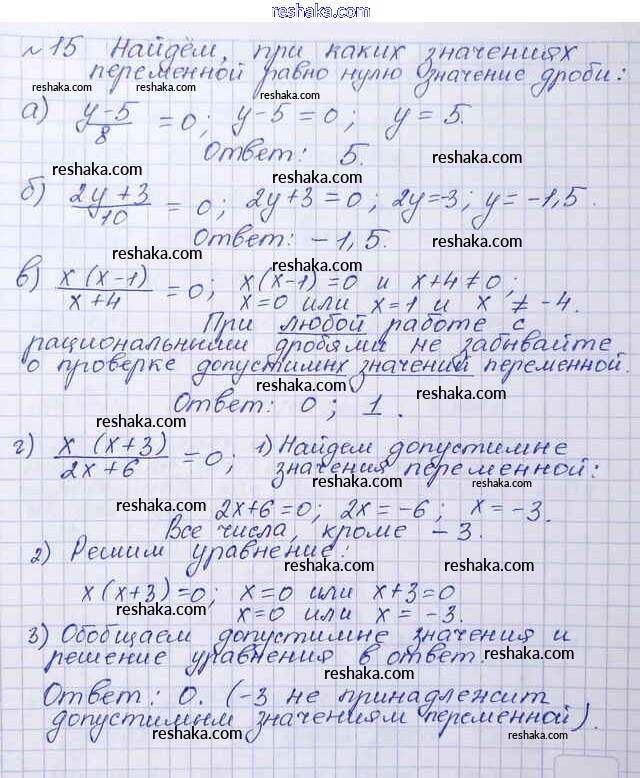 reshaka.com
№15 Найдём, при каких значениях
reshaka.com reshaka.com
переменной равно нулю значение дроби:
reshaka.com reshaka.com reshaka.com
а) (y-5)/8 = 0; y-5=0; y=5.
Ответ: 5.
reshaka.com reshaka.com
б) (2y+3)/10 = 0; 2y+3=0; 2y=-3; y=-1,5.
reshaka.com
Ответ: -1,5.
reshaka.com reshaka.com
в) x(x-1)/(x+4) = 0; x(x-1)=0 и x+4≠0;
x=0 или x=1 и x≠-4.
reshaka.com reshaka.com
При любой работе с
рациональными дробями не забывайте
о проверке допустимых значений переменной.
reshaka.com reshaka.com
Ответ: 0; 1.
reshaka.com
г) x(x+3)/(2x+6) = 0; 1) Найдем допустимые
значения переменной:
reshaka.com reshaka.com
2x+6=0; 2x=-6; x=-3.
Все числа, кроме -3.
reshaka.com
2) Решим уравнение:
reshaka.com
x(x+3)=0; x=0 или x+3=0
x=0 или x=-3.
reshaka.com reshaka.com
3) Обобщаем допустимые значения и
решение уравнения в ответ.
reshaka.com
Ответ: 0. (-3 не принадлежит
допустимым значениям переменной).
reshaka.com reshaka.com reshaka.com